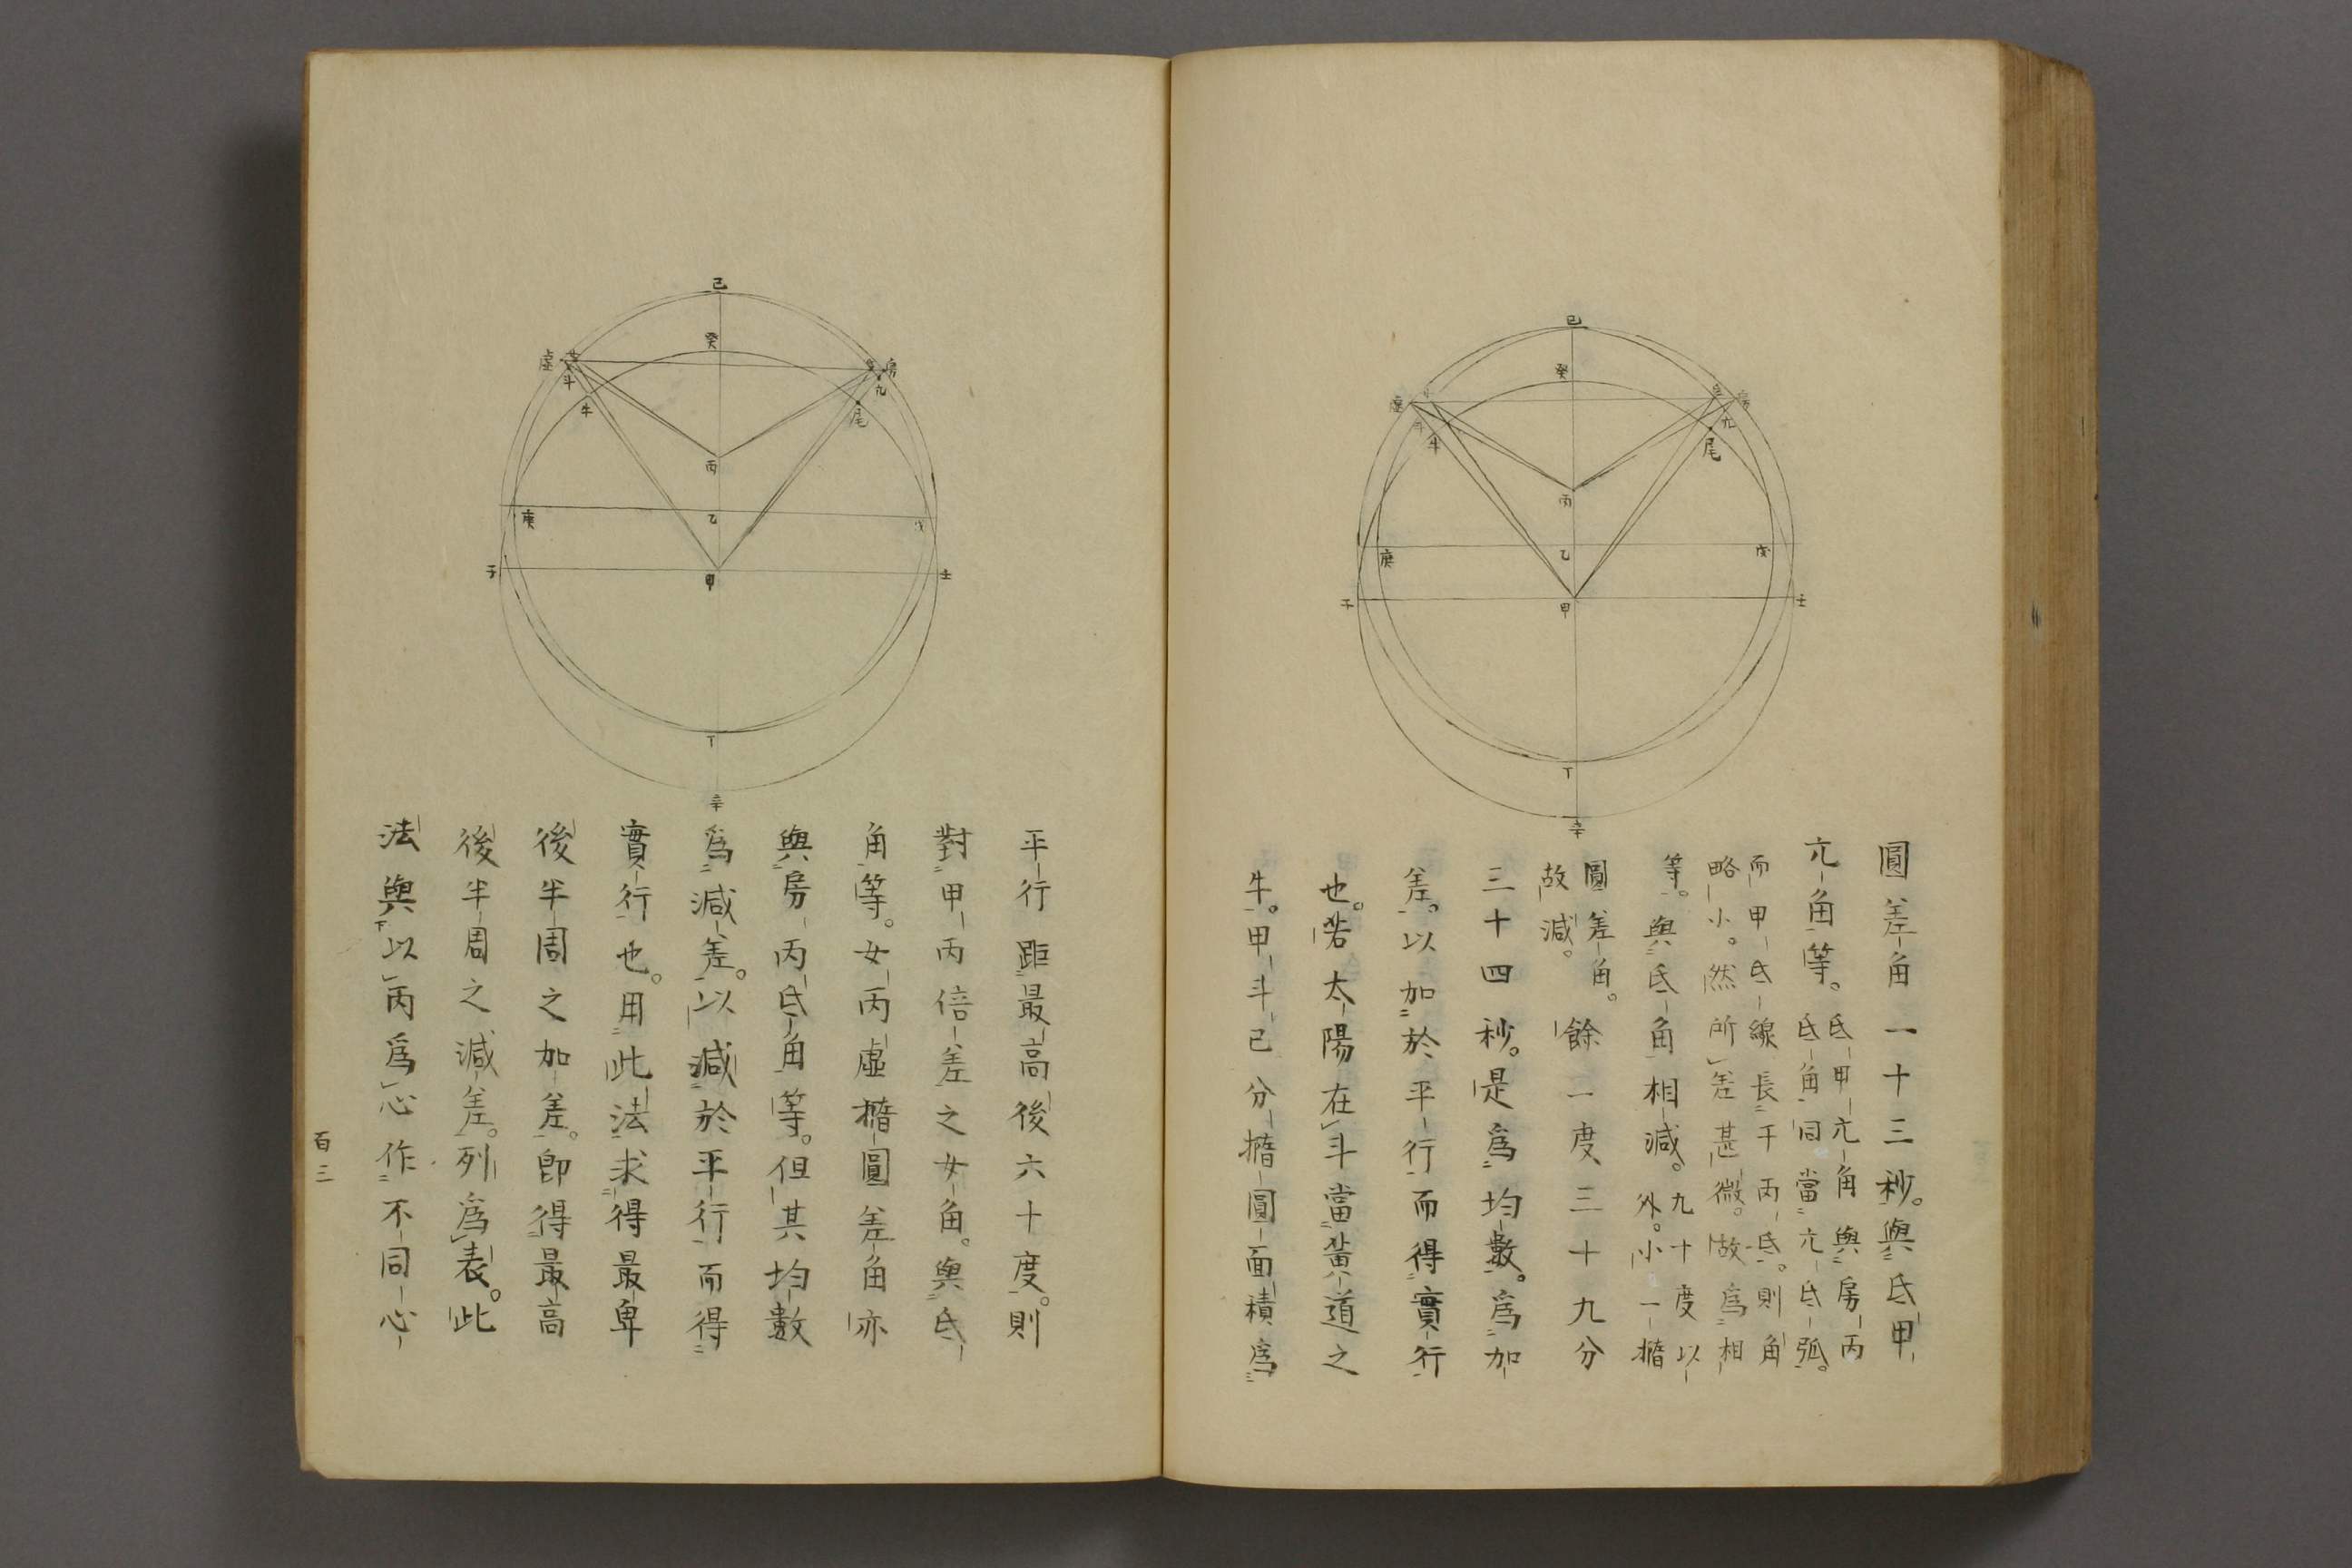 己
癸
氐
房
亢
尾
虛
斗
牛
丙
乙
庚
戊
甲
子
壬
丁
辛
圓差角一十三秒。與氐甲
亢角等。氐甲亢角與房丙
氐角同當亢氐弧。
而甲氐線長于丙氐。則角
略小。然所差甚微。故爲相
等。與氐角相減。九十度以
外。小一橢
圓差角。
故減。餘一度三十九分
三十四秒。是爲均數。爲加
差。以加於平行而得實行
也。若太陽在斗當黃道之
牛。甲斗己分橢圓面積爲
己
癸
虛
女
斗
牛
氐
房
亢
尾
丙
庚
乙
戊
子
甲
壬
丁
辛
平行距最高後六十度。則
對甲丙倍差之女角。與氐
角等。女丙虛橢圓差角亦
與房丙氐角等。但其均數
爲減差。以減於平行而得
實行也。用此法求得最卑
後半周之加差。卽得最高
後半周之減差。列爲表。此
法與以丙爲心作不同心
百三